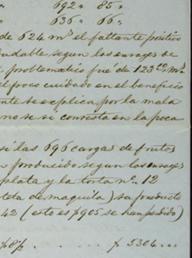 692" 85"
636" 66"
de 624 m.s el faltante positivo
dudable segun los ensayes de
problematico fué de 123 m.s
el poco cuidado en el beneficio
nte se esplica por la mala
no se si consista en la poca
si las 696 cargas de frutos
n producido segun los ensayes
plata y la torta nº 12
eta de maquila) se producto
42 (esto es $905 se han pedido)
$ 5304